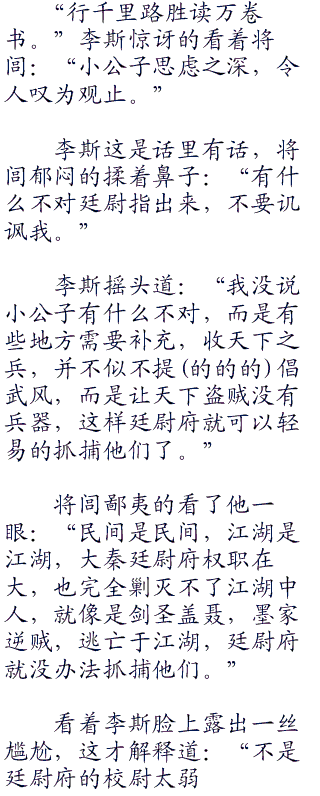 “行千里路胜读万卷
书。”李斯惊讶的看着将
闾：“小公子思虑之深，令
人叹为观止。”
李斯这是话里有话，将
闾郁闷的揉着鼻子：“有什
么不对廷尉指出来，不要讥
讽我。”
李斯摇头道：“我没说
小公子有什么不对，而是有
些地方需要补充，收天下之
兵，并不似不提(的的的)倡
武风，而是让天下盗贼没有
兵器，这样廷尉府就可以轻
易的抓捕他们了。”
将闾鄙夷的看了他一
眼：“民间是民间，江湖是
江湖，大秦廷尉府权职在
大，也完全剿灭不了江湖中
人，就像是剑圣盖聂，墨家
逆贼，逃亡于江湖，廷尉府
就没办法抓捕他们。”
看着李斯脸上露出一丝
尴尬，这才解释道：“不是
廷尉府的校尉太弱